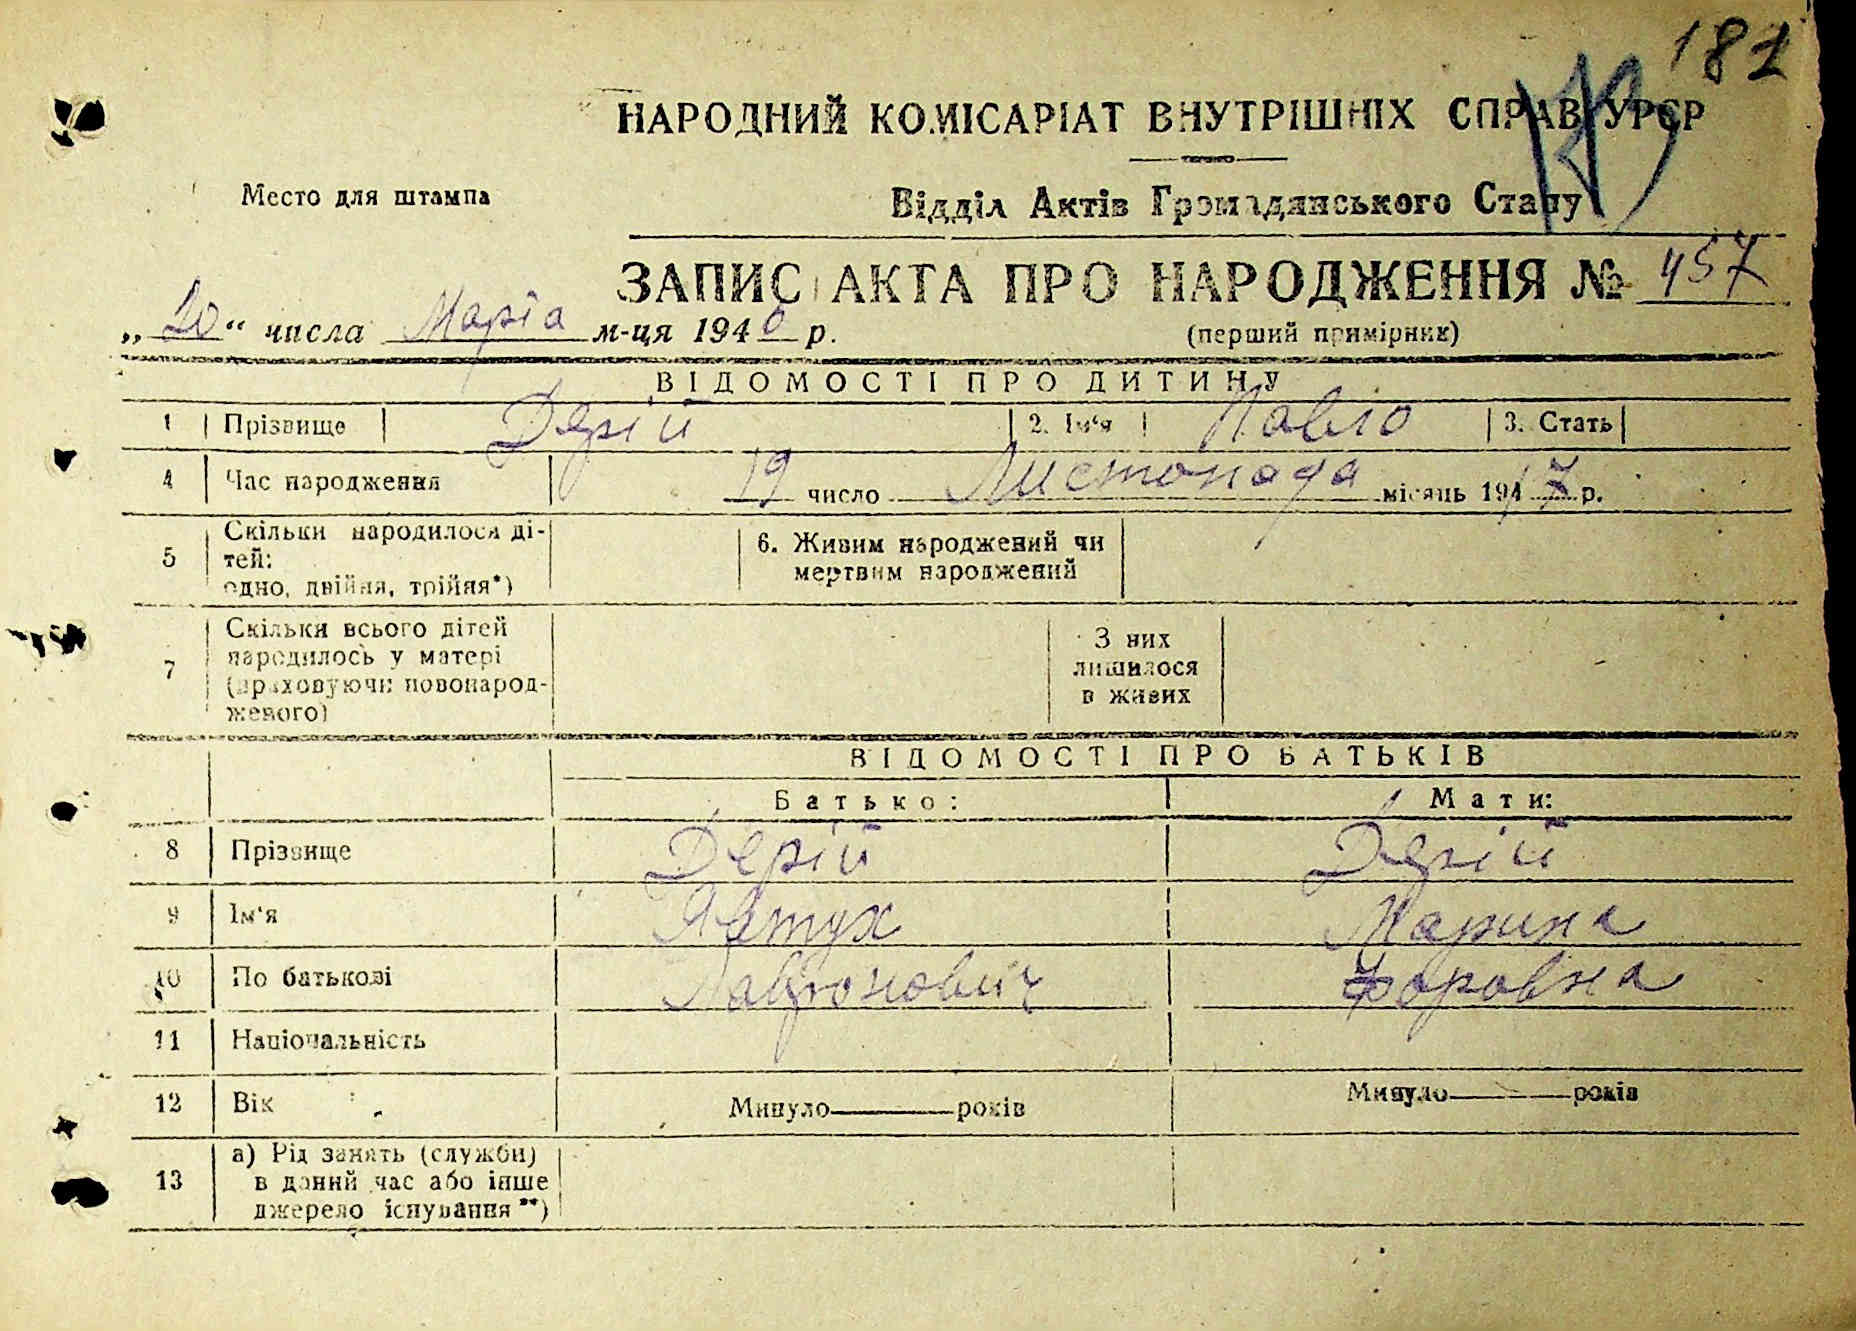 187
НАРОДНИЙ КОМІСАРІАТ ВНУТРІШНІХ СПРАВ УРСР
Место для штампа
Відділ Актів Громадянського Стану
ЗАПИС АКТА ПРО НАРОДЖЕННЯ № 457
„20“ числа Марта м-ця 194 р.
(перший примірник)
ВІДОМОСТІ ПРО ДИТИНУ
1 Прізвище Дерій 2. Ім'я Павло 3. Стать
4 Час народження 19 число Листопада місяць 1917 р.
5 Скільки народилося ді-
тей:
одно, двійня, трійня*)
6. Живим народжений чи
мертвим народжений
7 Скільки всього дітей
народилось у матері
(враховуючи новонарод-
женого)
З них
лишилося
в живих
ВІДОМОСТІ ПРО БАТЬКІВ
Батько: Мати:
8 Прізвище Дерій Дерій
9 Ім'я Явтух Марина
10 По батькові
11 Національність
12 Вік Минуло років Минуло років
13 а) Рід занять (служби)
в даний час або інше
джерело існування**)